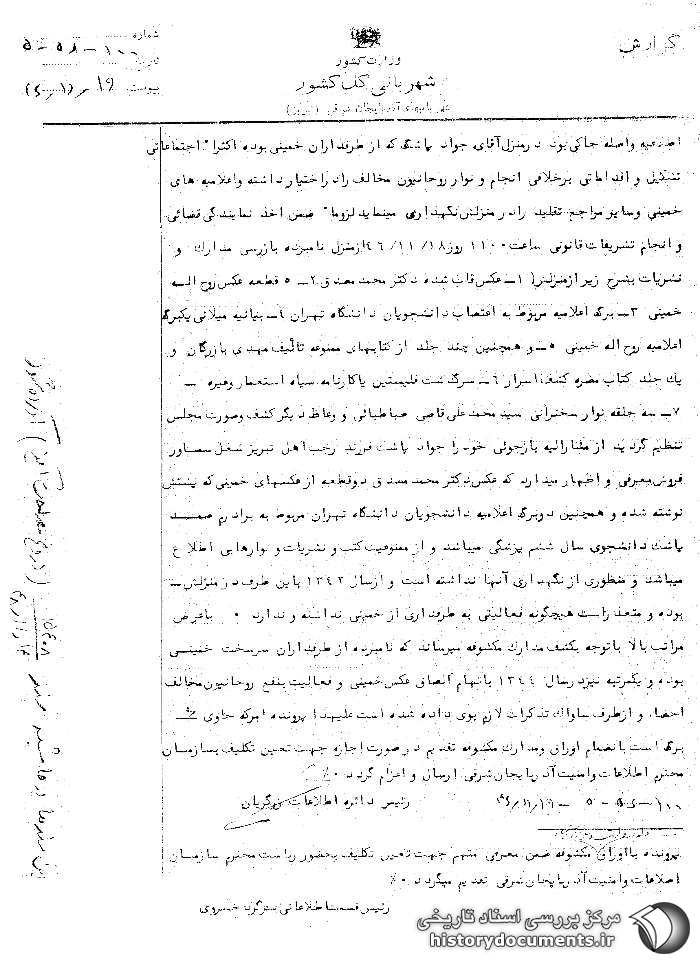 گزارش
وزارت کشور
شهربانی کل کشور
شهربانیهای آذربایجان شرقی (تبریز)
شماره ۱۰۰ – ۵۸ – ۵
تاریخ
پیوست
اطلاعیه واصله حاکی بود در منزل آقای جواد یاشنگ که از طرفداران خمینی بوده اکثرا" اجتماعاتی
تشکیل و اقداماتی برخلافی انجام و نوار روحانیون مخالف را در اختیار داشته و اعلامیه های
خمینی و سایر مراجع تقلید را در منزلش نگهداری مینماید لزوما" ضمن اخذ نمایندگی قضائی
و انجام تشریفات قانونی ساعت ۱۱۰۰ روز ۴۶/۱۱/۱۸ از منزل نامبرده بازرسی مدارک و
نشریات بشرح زیر از منزلش ( ۱ــ عکس قاب شده دکتر محمد مصدق ۲ــ ۵ قطعه عکس روح اله
خمینی ۳ــ برگ اعلامیه مربوط به اعتصاب دانشجویان دانشگاه تهران ۴ــ بیانیه میلانی یکبرگ
اعلامیه روح اله خمینی ۵ــ و همچنین چند جلد از کتابهای ممنوعه تألیف مهدی بازرگان و
یک جلد کتاب مضره کشف اسرار ۶ــ سرگذشت فلسطین یا کارنامه سیاه استعمار و غیره ــ
۷ــ سه حلقه نوار سخنرانی سید محمد علی قاضی طباطبائی و وعاظ دیگر کشف و صورت مجلس
تنظیم گردید از مشارالیه بازجوئی خود را جواد یاشنگ فرزند رجب اهل تبریز شغل سماور
فروش معرفی و اظهار میدارد که عکس دکتر محمد مصدق دو قطعه از عکسهای خمینی که پشتش
نوشته شده و همچنین دو برگ اعلامیه دانشجویان دانشگاه تهران مربوط به برادرم صمد
یاشنگ دانشجوی سال ششم پزشکی میباشد و از ممنوعیت کتب و نشریات و نوارهایی اطلاع
میباشد و منظوری از نگهداری آنها نداشته است و از سال ۱۳۴۲ باین طرف در منزلش ــ
بوده و متعذر است هیچگونه فعالیتی به طرفداری از خمینی نداشته و ندارد ۰ با عرض
مراتب بالا با توجه بکشف مدارک مکشوفه میرساند که نامبرده از طرفداران سرسخت خمینی
بوده و یکمرتبه نیز در سال ۱۳۴۴ باتهام الصاق عکس خمینی و فعالیت بنفع روحانیون مخالف
احضار و از طرف ساواک تذکرات لازم بوی داده شده است علیهذا پرونده امر که حاوی
برگ است با نضمام اوراق و مدارک مکشوفه تقدیم در صورت اجازه جهت تعیین تکلیف بسازمان
محترم اطلاعات و امنیت آذربایجان شرقی ارسال و اعزام گردد ۰٪
رئیس دائره اطلاعات
۱۰۰ – ۵۵ – ۵ – ۴۶/۱۱/۱۹
پرونده با اوراق مکشوفه ضمن معرفی متهم جهت تعیین تکلیف بحضور ریاست محترم سازمان
اطلاعات و امنیت آذربایجان شرقی تقدیم میگردد ۰٪
رئیس قسمت اطلاعاتی سرگرد خسروی
مرکز بررسی اسناد تاریخی
historydocuments.ir